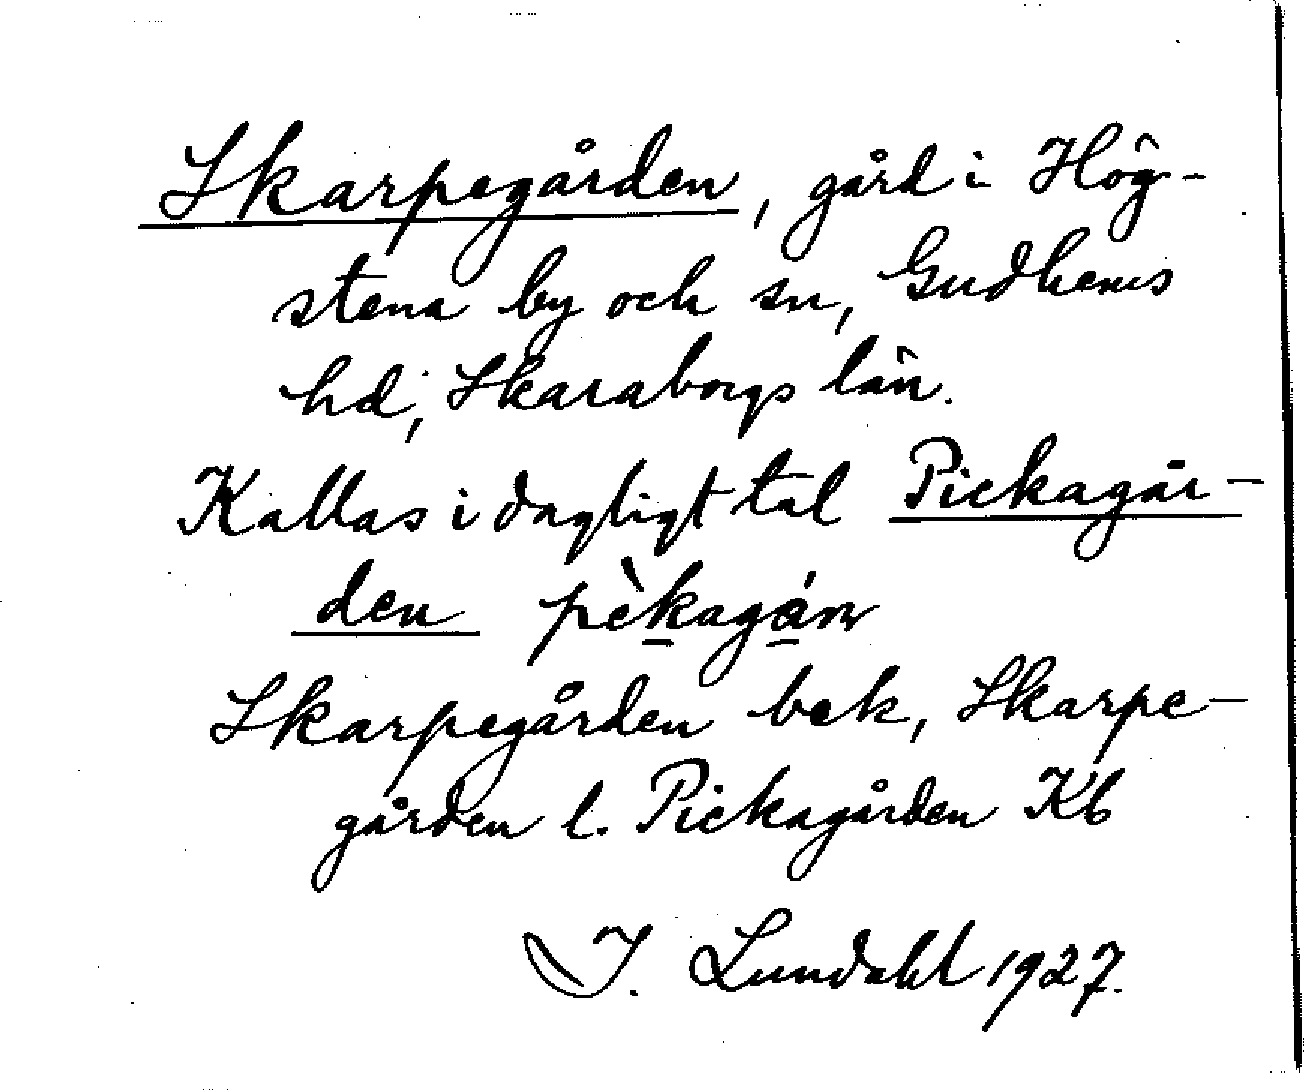 Skarpegården, gård i Hög-
stena by och sn, Gudhems
hd, Skaraborgs län.
Kallas i dagligt tal Pickagår-
den pèkagán
Skarpegården bek, Skarpe-
gården l. Pickagården Kb
I. Lundahl 1927.